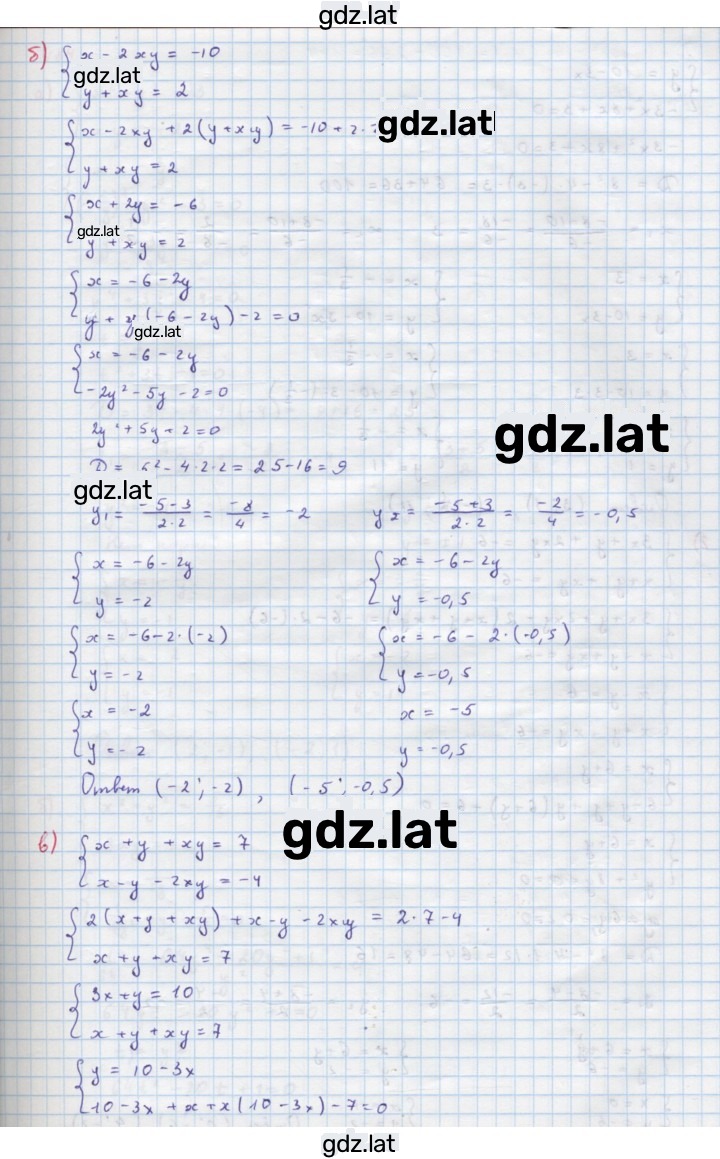 gdz.lat
б) { x - 2xy = -10
gdz.lat
y + xy = 2
{ x - 2xy + 2(y + xy) = -10 + 2 · gdz.lat
y + xy = 2
{ x + 2y = -6
gdz.lat
y + xy = 2
{ x = -6 - 2y
y + y (-6 - 2y) - 2 = 0
gdz.lat
{ x = -6 - 2y
-2y² - 5y - 2 = 0
2y² + 5y + 2 = 0
gdz.lat
D = 5² - 4·2·2 = 25 - 16 = 9
gdz.lat
y₁ = (-5-3)/(2·2) = (-8)/4 = -2    y₂ = (-5+3)/(2·2) = (-2)/4 = -0,5
{ x = -6 - 2y    { x = -6 - 2y
y = -2    y = -0,5
{ x = -6 - 2·(-2)    { x = -6 - 2·(-0,5)
y = -2    y = -0,5
{ x = -2    x = -5
y = -2    y = -0,5
Ответ (-2; -2), (-5; -0,5)
gdz.lat
в) { x + y + xy = 7
x - y - 2xy = -4
{ 2(x + y + xy) + x - y - 2xy = 2·7 - 4
x + y + xy = 7
{ 3x + y = 10
x + y + xy = 7
{ y = 10 - 3x
10 - 3x + x + x(10 - 3x) - 7 = 0
gdz.lat